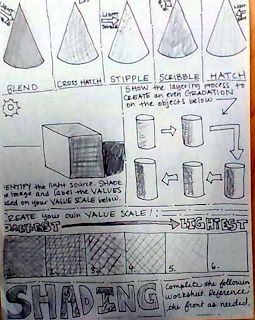 LIGHT
BLEND
CROSS HATCH
STIPPLE
SCRIBBLE
HATCH
SHOW the layering process to
CREATE an even GRADATION
on the objects below
IDENTIFY the light source. SHADE
the image and label the VALUES
based on your VALUE SCALE below.
CREATE your own VALUE SCALE!
DARKEST
LIGHTEST
1. 2. 3. 4. 5. 6.
SHADING
Complete the following
worksheet. Reference
the front as needed.